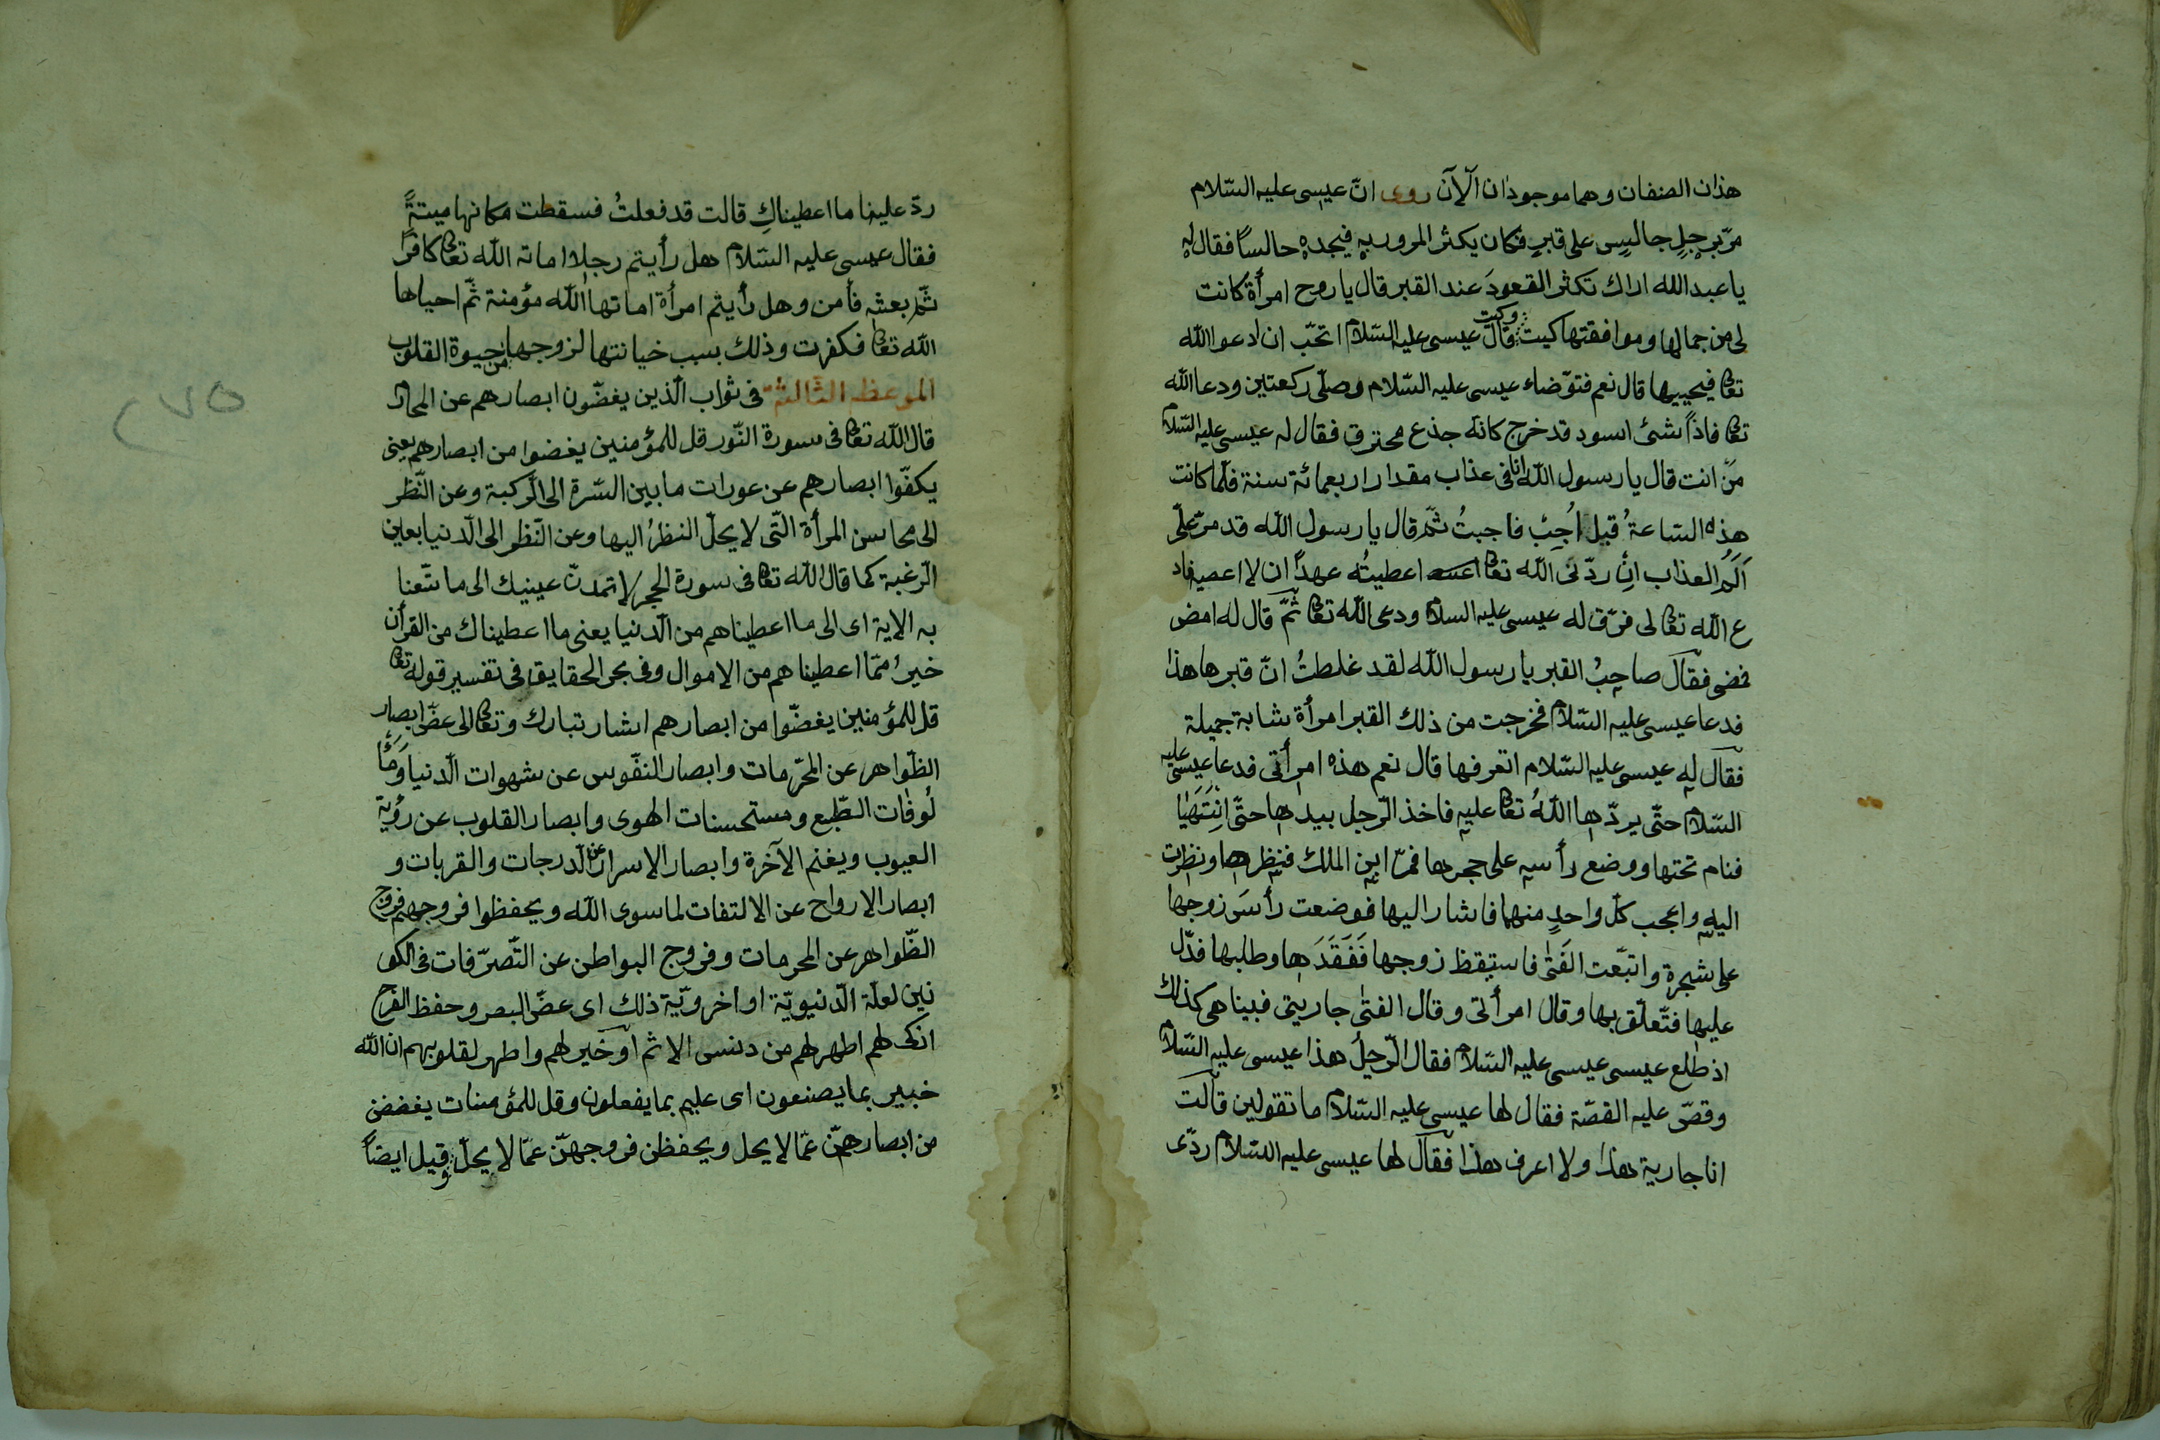 هذان الصنفان وهما موجودان الآن روى انّ عيسى عليه السّلام
مرّ برجلٍ جالسٍ على قبرٍ فكان يكثر المرور به فيجده جالساً فقال له
يا عبد الله اراك تكثر القعودَ عند القبر قال يا روح امرأة كانت
لى من جمالها وموافقتها كيت وكيت قال عيسى عليه السّلام اتحبّ ان ادعوا الله
تعالى فيحييها قال نعم فتوّضاء عيسى عليه السّلام وصلّى ركعتين ودعا الله
تعالى فاذاً شئ اسود قد خرج كانّه جذع محترق فقال له عيسى عليه السّلام
مَن انت قال يا رسول الله انا فى عذاب مقدار اربعمائة سنة فلمّا كانت
هذه السّاعةُ قيل اُجِبْ فاجبتُ ثمّ قال يا رسول الله قد مرّ علىّ
اَلَمُ العذاب اِنْ ردّنى الله تعالى اعطيتُه عهداً ان لا اعصيه فاد
ع الله تعالى لى فرّق له عيسى عليه السلام ودعى الله تعالى ثمّ قال له امض
فمضى فقال صاحبُ القبر يا رسول الله لقد غلطتُ انّ قبرها هذا
فدعا عيسى عليه السّلام فخرجت من ذلك القبر امرأة شابة جميلة
فقال له عيسى عليه السّلام اتعرفها قال نعم هذه امرأتى فدعا عيسى عليه
السّلام حتّى يردّها اللهُ تعالى عليه فاخذ الرّجل بيدها حتّى اِنْتَهَيَا
فنام تحتها ووضع رأسه على حجرها فمرّ ابن الملك فنظرها ونظرت
اليه واعجب كلّ واحدٍ منهما فاشار اليها فوضعت رأسَ زوجها
على شجرة واتبّعت الفَتٰى فاستيقظ زوجها فَفَقَدَها وطلبها فدّل
عليها فتّعلّق بها وقال امرأتى وقال الفتٰى جاريتى فبينا هى كذلك
اذ طلع عيسى عيسى عليه السّلام فقال الرّجلُ هذا عيسى عليه السّلام
وقصّ عليه القصّة فقال لها عيسى عليه السّلام ما تقولين قالت
انا جارية هذا ولا اعرف هذا فقال لها عيسى عليه السّلام ردّى
ردّ علينا ما اعطيناكِ قالت قد فعلتُ فسقطت مكانها ميتةً
فقال عيسى عليه السّلام هل رأيتم رجلا اماته الله تعالى كافراً
ثمّ بعثه فأمن وهل رأيتم امرأة اماتها الله مؤمنة ثمّ احياها
الله تعالى فكفرت وذلك بسبب خيانتها لزوجها من حيوة القلوب
الموعظة الثّالثة فى ثواب الّذين يغضّون ابصارهم عن المحارم
قال الله تعالى فى سورة النّور قل للمؤمنين يغضوا من ابصارهم يعنى
يكفّوا ابصارهم عن عورات ما بين السّرة الى الرّكبة وعن النّظر
الى محاسن المرأة الّتى لا يحلّ النظرُ اليها وعن النّظر الى الّدنيا بعين
الرّغبة كما قال الله تعالى فى سورة الحجر لا تمدنّ عينيك الى ما متّعنا
به الاية اى الى ما اعطيناهم من الّدنيا يعنى ما اعطيناك من القرأن
خيرٌ ممّا اعطيناهم من الاموال وفى بحر الحقايق فى تفسير قوله تعالى
قل للمؤمنين يغضّوا من ابصارهم اشار تبارك وتعالى الى غضّ ابصار
الظّواهر عن المحرّمات وابصار النفّوس عن شهوات الّدنيا وَمَأْ
لُوفات الطّبع ومستحسنات الهوى وابصار القلوب عن رؤية
العيوب ويغنم الآخرة وابصار الاسرار عن الّدرجات والقربات و
ابصار الارواح عن الالتفات لما سوى الله ويحفظوا فروجهم فروج
الظّواهر عن المحرمات وفروج البواطن عن التّصرّفات فى الكو
نين لعلّة الّدنيويّة او اخرويّية ذلك اى غضّ البصر وحفظ الفرج
ازكى لهم اطهر لهم من دنس الاثم او خير لهم واطهر لقلوبهم ان الله
خبير بما يصنعون اى عليم بما يفعلون وقل للمؤمنات يغضضن
من ابصارهنّ عمّا لا يحل ويحفظن فروجهنّ عمّا لا يحلّ وقيل ايضاً